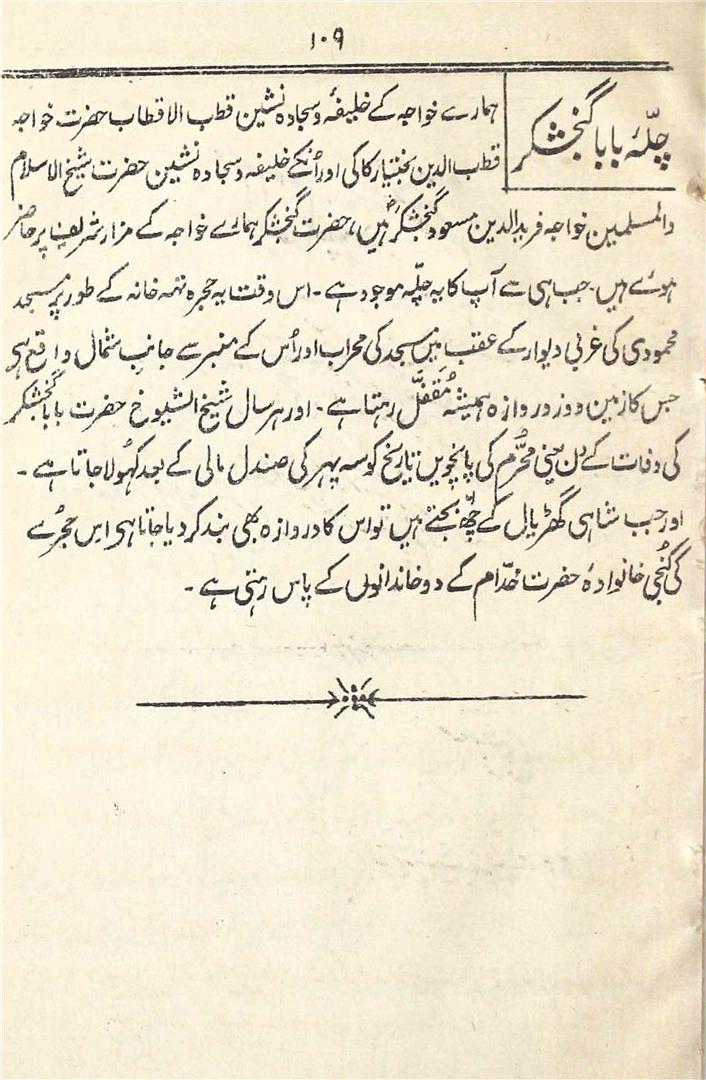 ۱۰۹
چلّۂ بابا گنجشکر
ہمارے خواجہ کے خلیفۂ و سجادہ نشین قطب الاقطاب حضرت خواجہ
قطب الدین بختیار کاکی اور اُنکے خلیفہ و سجادہ نشین حضرت شیخ الاسلام
والمسلمین خواجہ فرید الدین مسعود گنجشکرؒ ہیں، حضرت گنجشکر ہمارے خواجہ کے مزار شریف پر حاضر
ہوئے ہیں۔ جب ہی سے آپ کا یہ چلّہ موجود ہے۔ اس وقت یہ حجرہ تہہ خانہ کے طور پر مسجد
محمودی کی غربی دیوار کے عقب میں مسجد کی محراب اور اُس کے منبر سے جانب شمال واقع ہی
جس کا زمین دوز دروازہ ہمیشہ مُقَفَّل رہتا ہے۔ اور ہر سال شیخ الشیوخ حضرت بابا گنجشکر
کی وفات کے دن یعنی محرّم کی پانچویں تاریخ کو سہ پہر کی صندل مالی کے بعد کھُولا جاتا ہے۔
اور جب شاہی گھڑیال کے چھ بجتے ہیں تو اس کا دروازہ بھی بند کر دیا جاتا ہی اس حجرے
کی کُنجی خانوادۂ حضرت خدّام کے دو خاندانوں کے پاس رہتی ہے۔